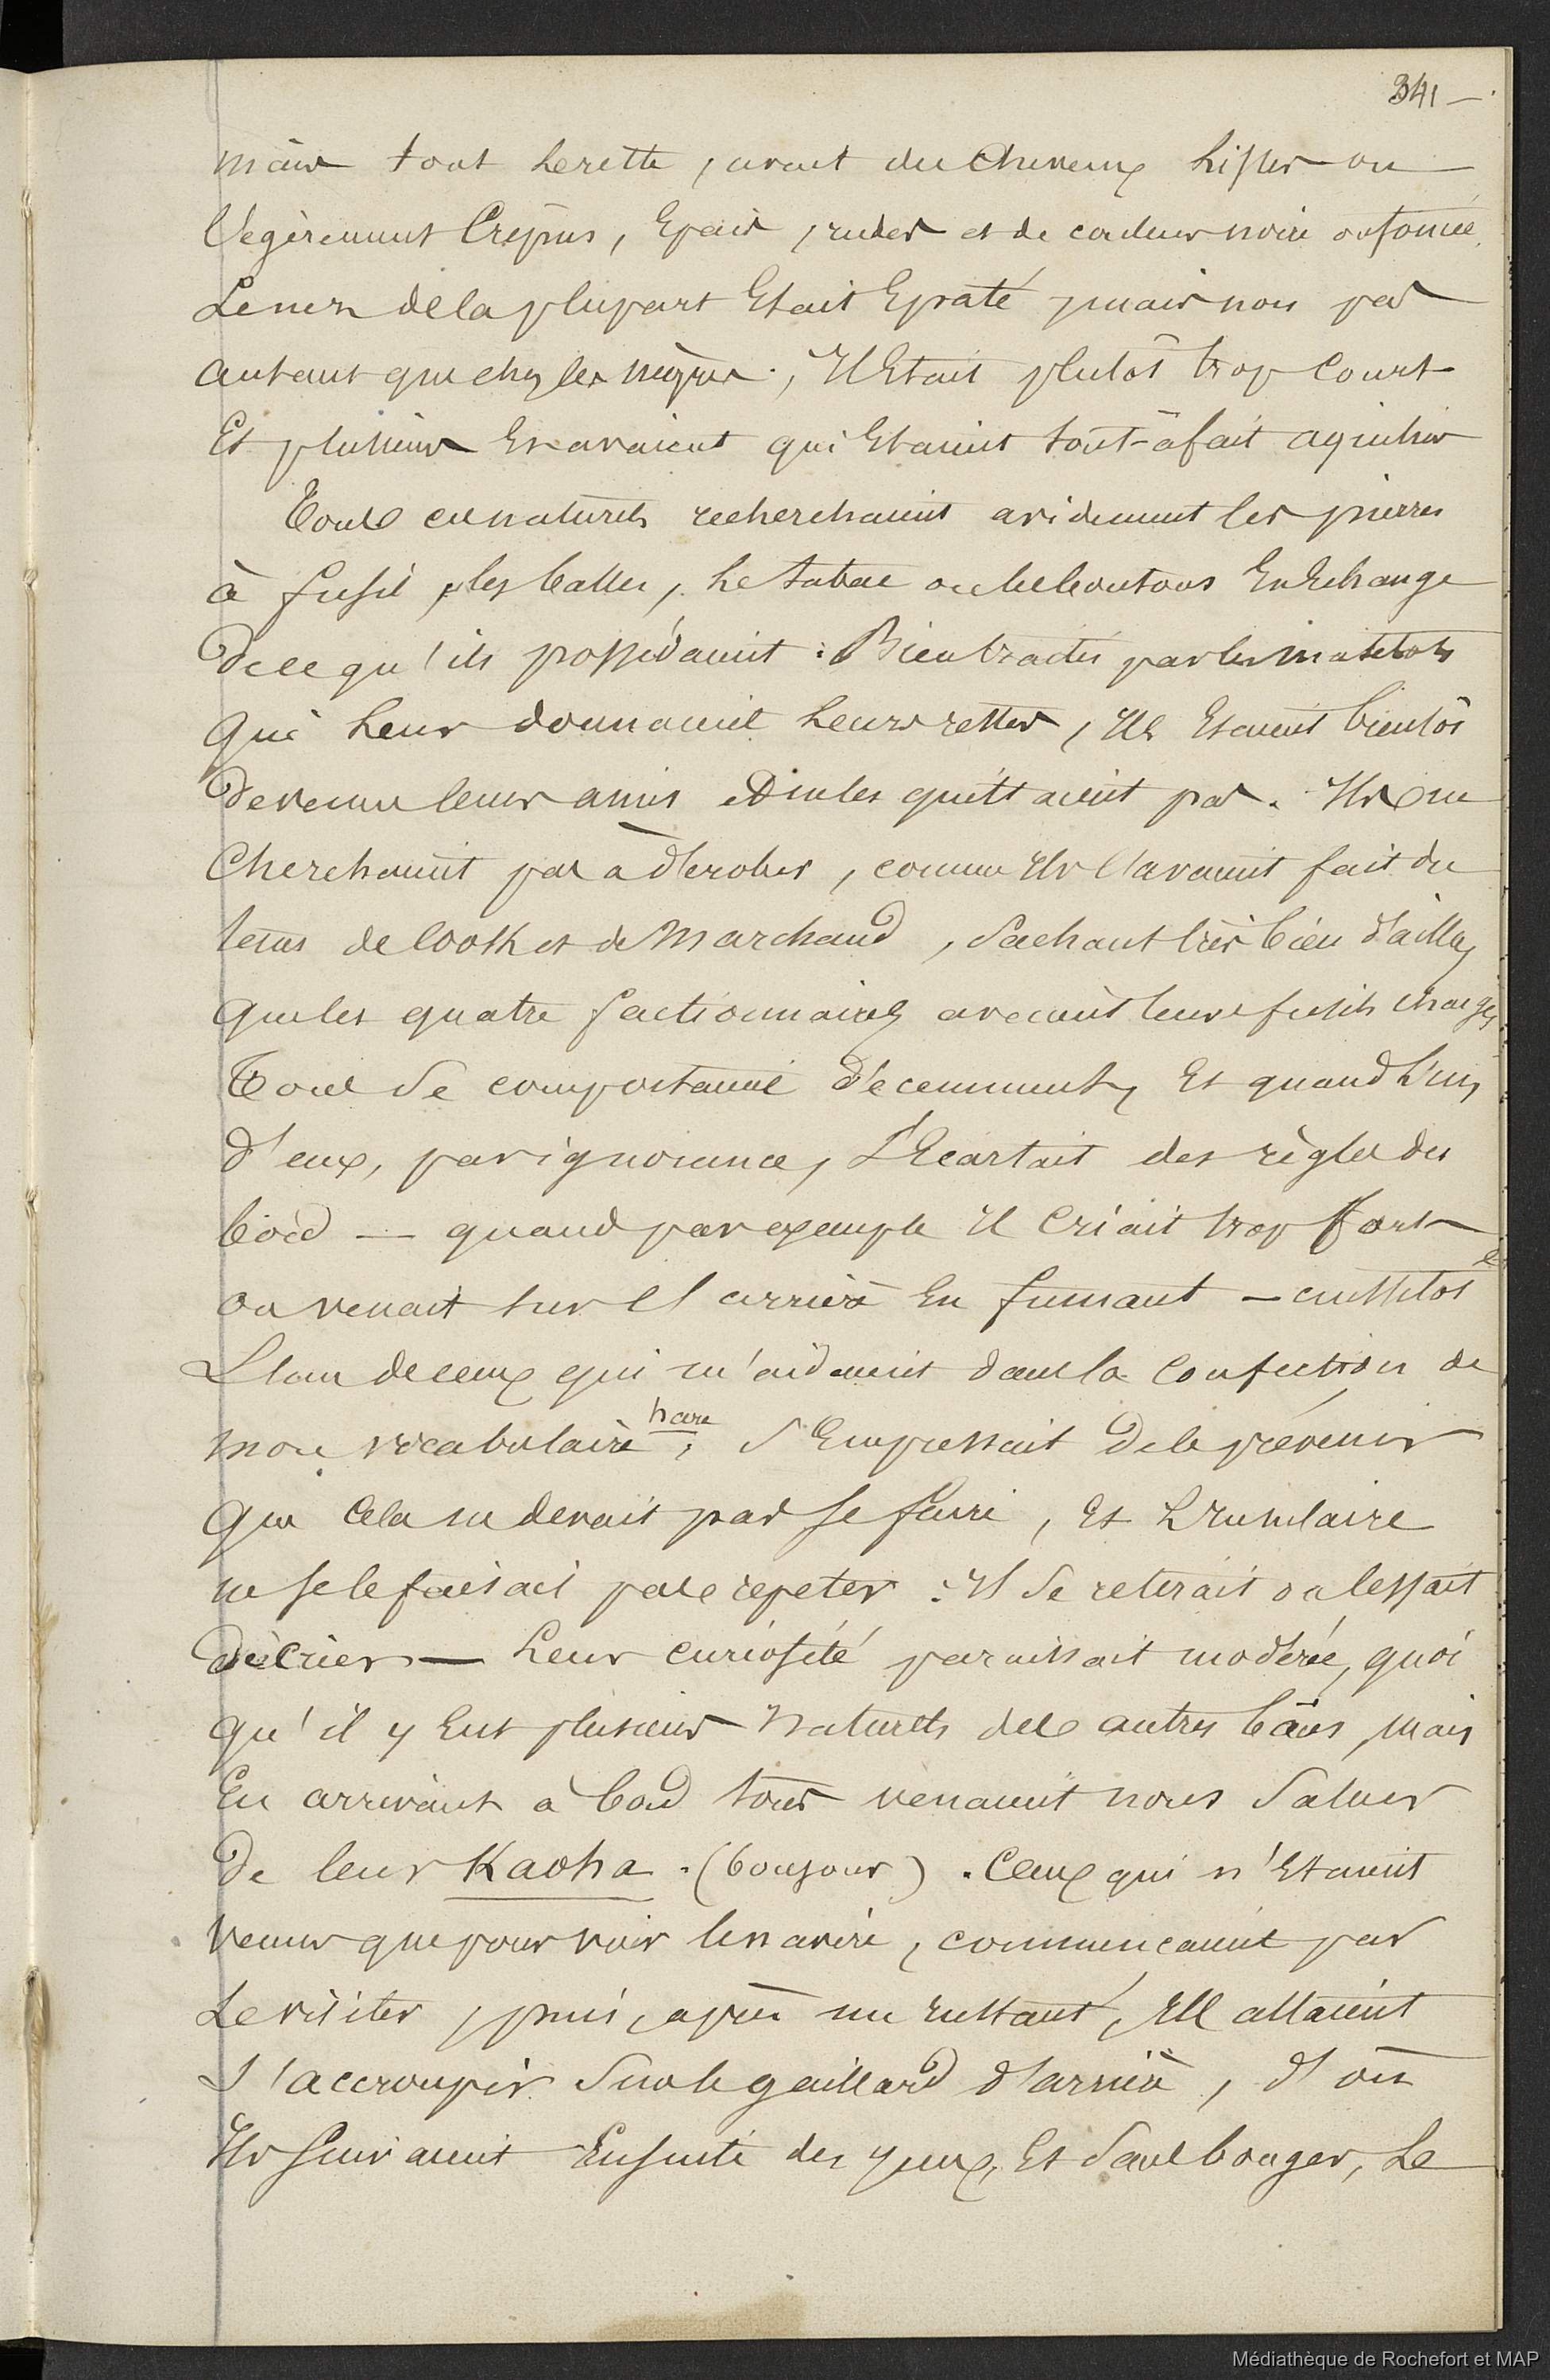 341 –
mais tout le reste, avait des cheveux lisses ou
légèrement crépus, épais, rudes et de couleur noire ou foncée.
Le nez de la plupart était épaté, mais non pas
autant que chez les nègres., Il était plutôt trop court
Et plusieurs En avaient qui Etaient tout-à fait aquilins
Tous ces naturels recherchaient avidement les pierres
à fusil, les balles, le tabac ou les boutons En Echange
de ce qu'ils possédaient. Bien traités par les matelots
Qui leur donnaient leurs restes, Ils Etaient bientôt
devenus leurs amis et ne les quittaient pas. Ils ne
cherchaient pas à dérober, comme Ils l'avaient fait du
tems de Cook et de Marchand, sachant très bien d'aill
que les quatre factionnaires avaient leurs fusils chargés
Tous se comportaient décemment, Et quand l'un
d'eux, par ignorance, s'Ecartait des règles du
bord — quand par exemple Il criait trop fort
ou venait sur l'arrière En fumant — aussitôt
L'un de ceux qui m'aidaient dans la confection de
mon vocabulaire, s'Empressait de le prévenir
Que cela ne devait pas se faire, Et l'insulaire
ne se le faisait pas répéter. Il se retirait ou cessait
de crier — Leur curiosité paraissait modérée, quoi
qu'il y Eut plusieurs Naturels des autres baies, mais
En arrivant à bord tous venaient nous saluer
de leur Kaoha. (bonjour). Ceux qui n'Etaient
venus que pour voir le navire, commençaient par
Le visiter, puis, après un Instant, Ils allaient
s'accroupir sur le gaillard d'arrière, d'où
Ils suivaient Ensuite des yeux, Et sans bouger, Le
Médiathèque de Rochefort et MAP